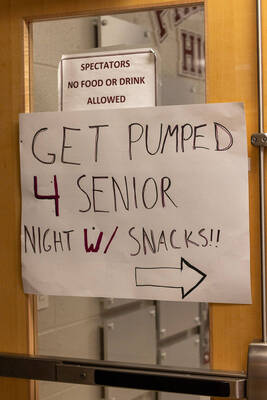 SPECTATORS
NO FOOD OR DRINK
ALLOWED
GET PUMPED
4 SENIOR
NIGHT W/ SNACKS!!